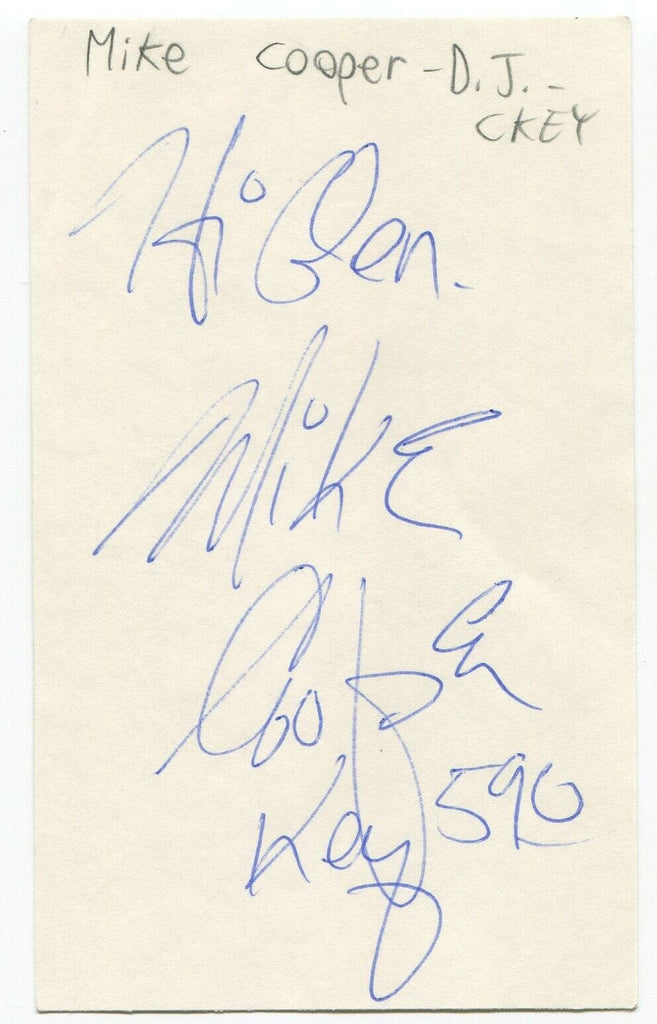 Mike Cooper - D.J. -
CKEY
Hi Glen.
Mike
Cooper
Key 590